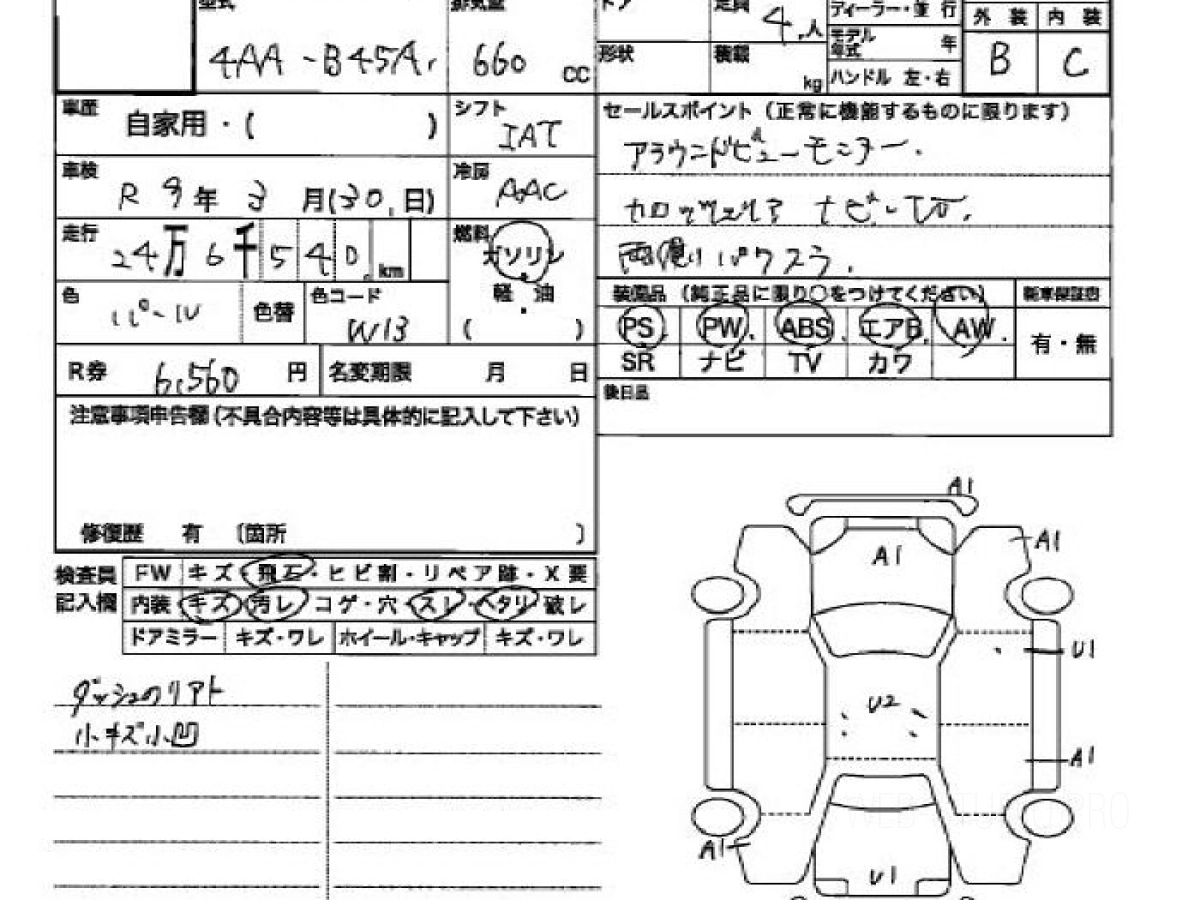 型式 排気量 ドア 定員 4.人 ディーラー・並 行 外 装 内 装
4AA-B45A. 660 CC 形状 積載 kg モデル年式 年 B C
ハンドル 左・右
車歴 自家用・( ) シフト IAT セールスポイント (正常に機能するものに限ります)
アラウンドビューモニター.
車検 R 9 年 3 月(30.日) 冷房 AAC
ナビ・TV.
走行 24万 6千 5 4 0. km 燃料 ガソリン
軽 油
( )
色 パール 色替 色コード W13
装備品 (純正品に限り○をつけてください) 新車保証書
PS. PW. ABS エアB. AW. 有・無
SR ナビ TV カワ
R券 6,560 円 名変期限 月 日
後日品
注意事項申告欄(不具合内容等は具体的に記入して下さい)
修復歴 有 〔箇所 〕
検査員記入欄
FW キズ・飛石・ヒビ割・リペア跡・X 要
内装・キズ・汚レ・コゲ・穴・スレ・ヘタリ・破レ
ドアミラー キズ・ワレ ホイール・キャップ キズ・ワレ
小キズ小凹
A1
A1
A1
U1
U2
A1
A1
U1